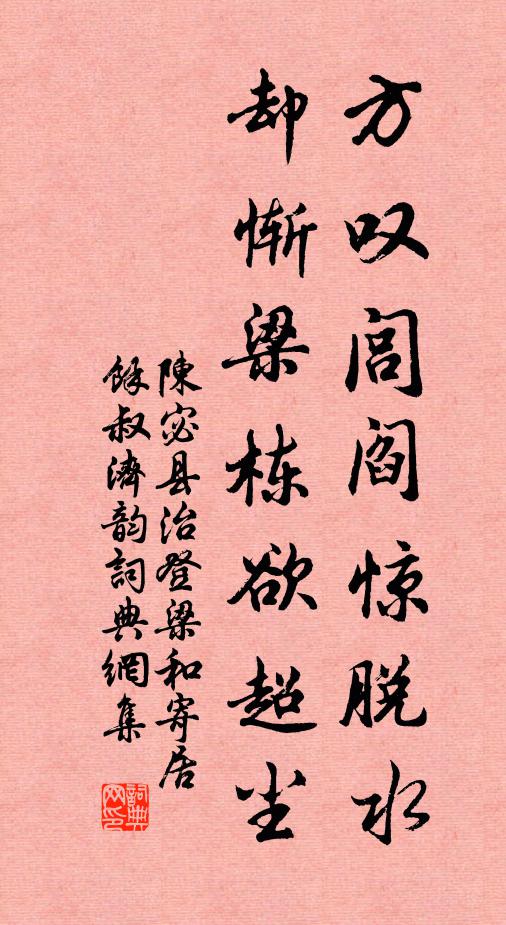 方叹闾阎惊脱水
却惭梁栋欲超尘
陳宓县治登梁和寄居
餘叔濟韵詞典網集
詞典网印